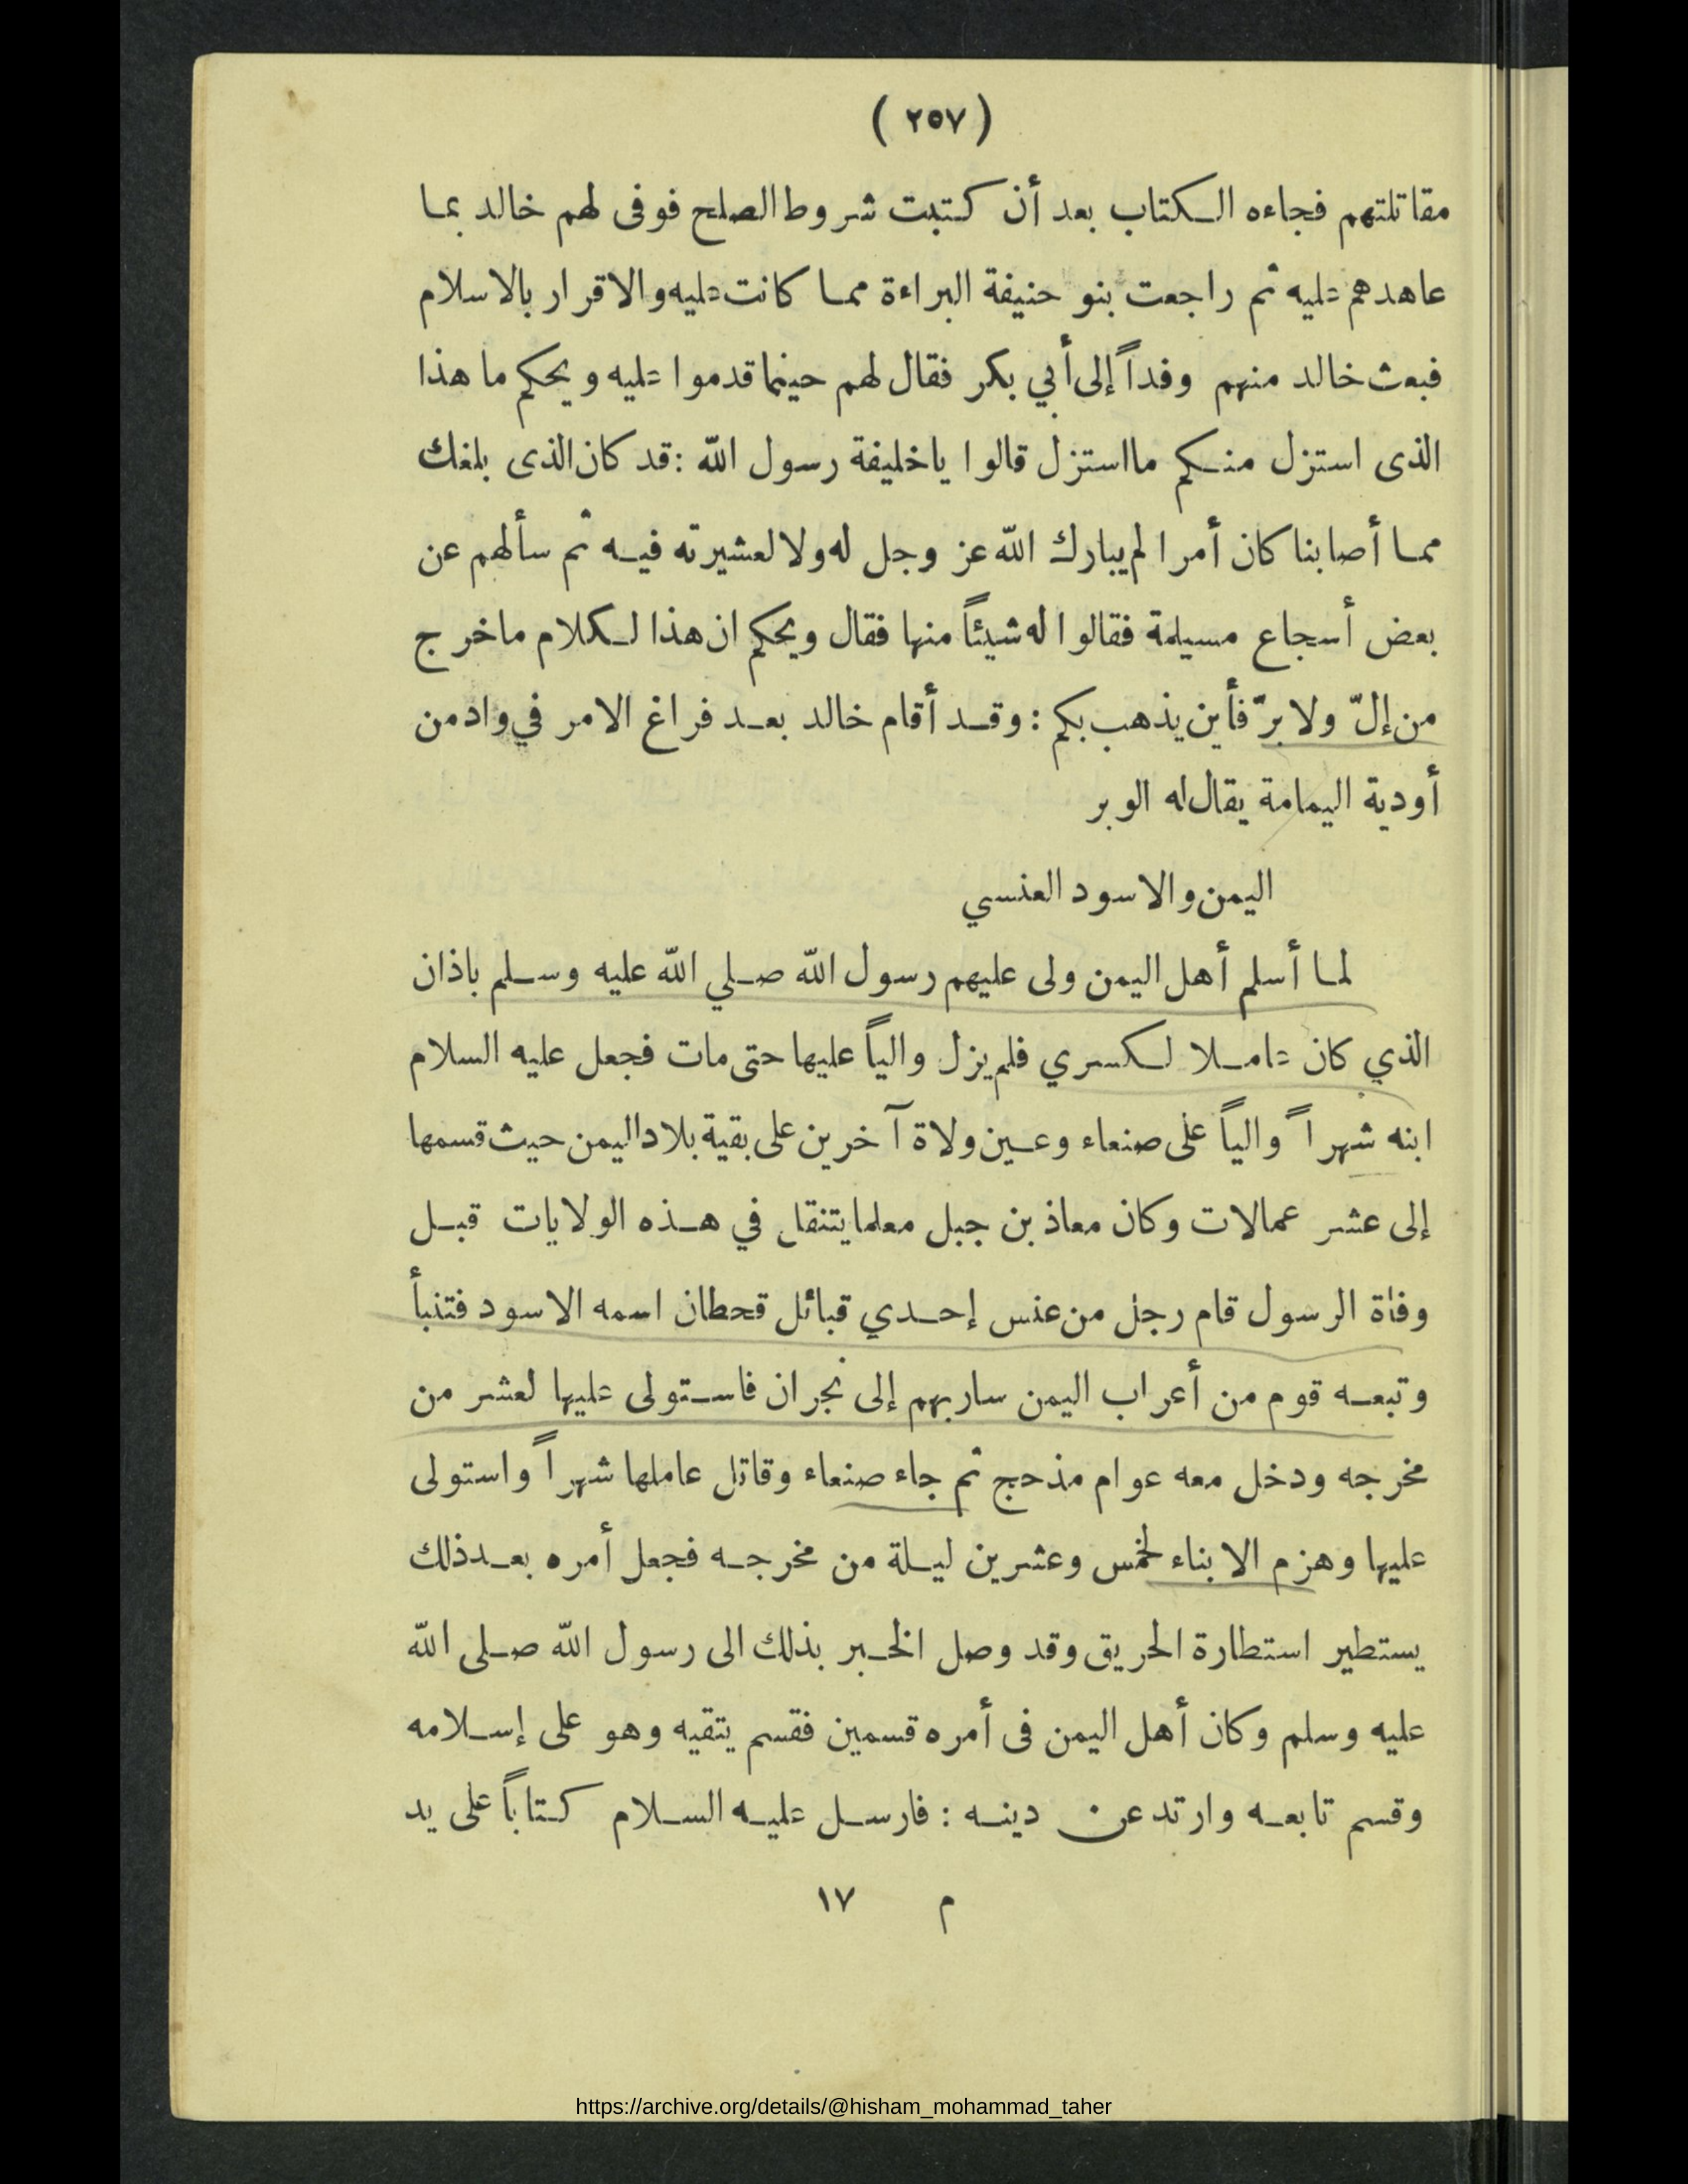 ( ٢٥٧ )
مقاتلتهم فجاءه الكتاب بعد أن كتبت شروط الصلح فوفى لهم خالد بما
عاهدهم عليه ثم راجعت بنو حنيفة البراءة مما كانت عليه والاقرار بالاسلام
فبعث خالد منهم وفداً إلى أبي بكر فقال لهم حينما قدموا عليه ويحكم ما هذا
الذى استزل منكم ما استزل قالوا يا خليفة رسول الله : قد كان الذى بلغك
مما أصابنا كان أمرا لم يبارك الله عز وجل له ولا لعشيرته فيه ثم سألهم عن
بعض أسجاع مسيلمة فقالوا له شيئاً منها فقال ويحكم ان هذا لكلام ماخرج
من إلّ ولا برّ فأين يذهب بكم : وقد أقام خالد بعد فراغ الامر في واد من
أودية اليمامة يقال له الوبر
اليمن والاسود العنسي
لما أسلم أهل اليمن ولى عليهم رسول الله صلي الله عليه وسلم باذان
الذي كان عاملا لكسري فلم يزل والياً عليها حتى مات فجعل عليه السلام
ابنه شهراً والياً على صنعاء وعين ولاة آخرين على بقية بلاد اليمن حيث قسمها
إلى عشر عمالات وكان معاذ بن جبل معلما يتنقل في هذه الولايات قبل
وفاة الرسول قام رجل من عنس إحدي قبائل قحطان اسمه الاسود فتنبأ
وتبعه قوم من أعراب اليمن سار بهم إلى نجران فاستولى عليها لعشر من
مخرجه ودخل معه عوام مذحج ثم جاء صنعاء وقاتل عاملها شهراً واستولى
عليها وهزم الابناء لخمس وعشرين ليلة من مخرجه فجعل أمره بعد ذلك
يستطير استطارة الحريق وقد وصل الخبر بذلك الى رسول الله صلى الله
عليه وسلم وكان أهل اليمن فى أمره قسمين فقسم يتقيه وهو على إسلامه
وقسم تابعه وارتد عن دينه : فارسل عليه السلام كتاباً على يد
م ١٧
https://archive.org/details/@hisham_mohammad_taher